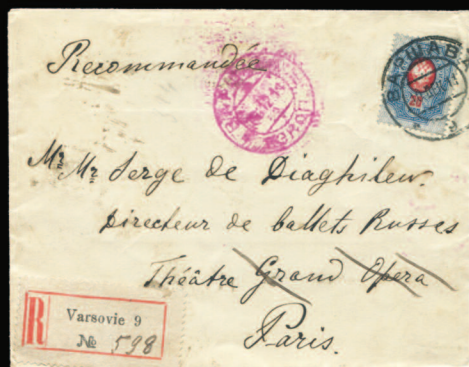 Recommandée
ВАРШАВА
20
Mr Mr Serge de Diaghilew.
Directeur de ballets Russes
Théâtre Grand Opera
Paris.
R
Varsovie 9
№ 598